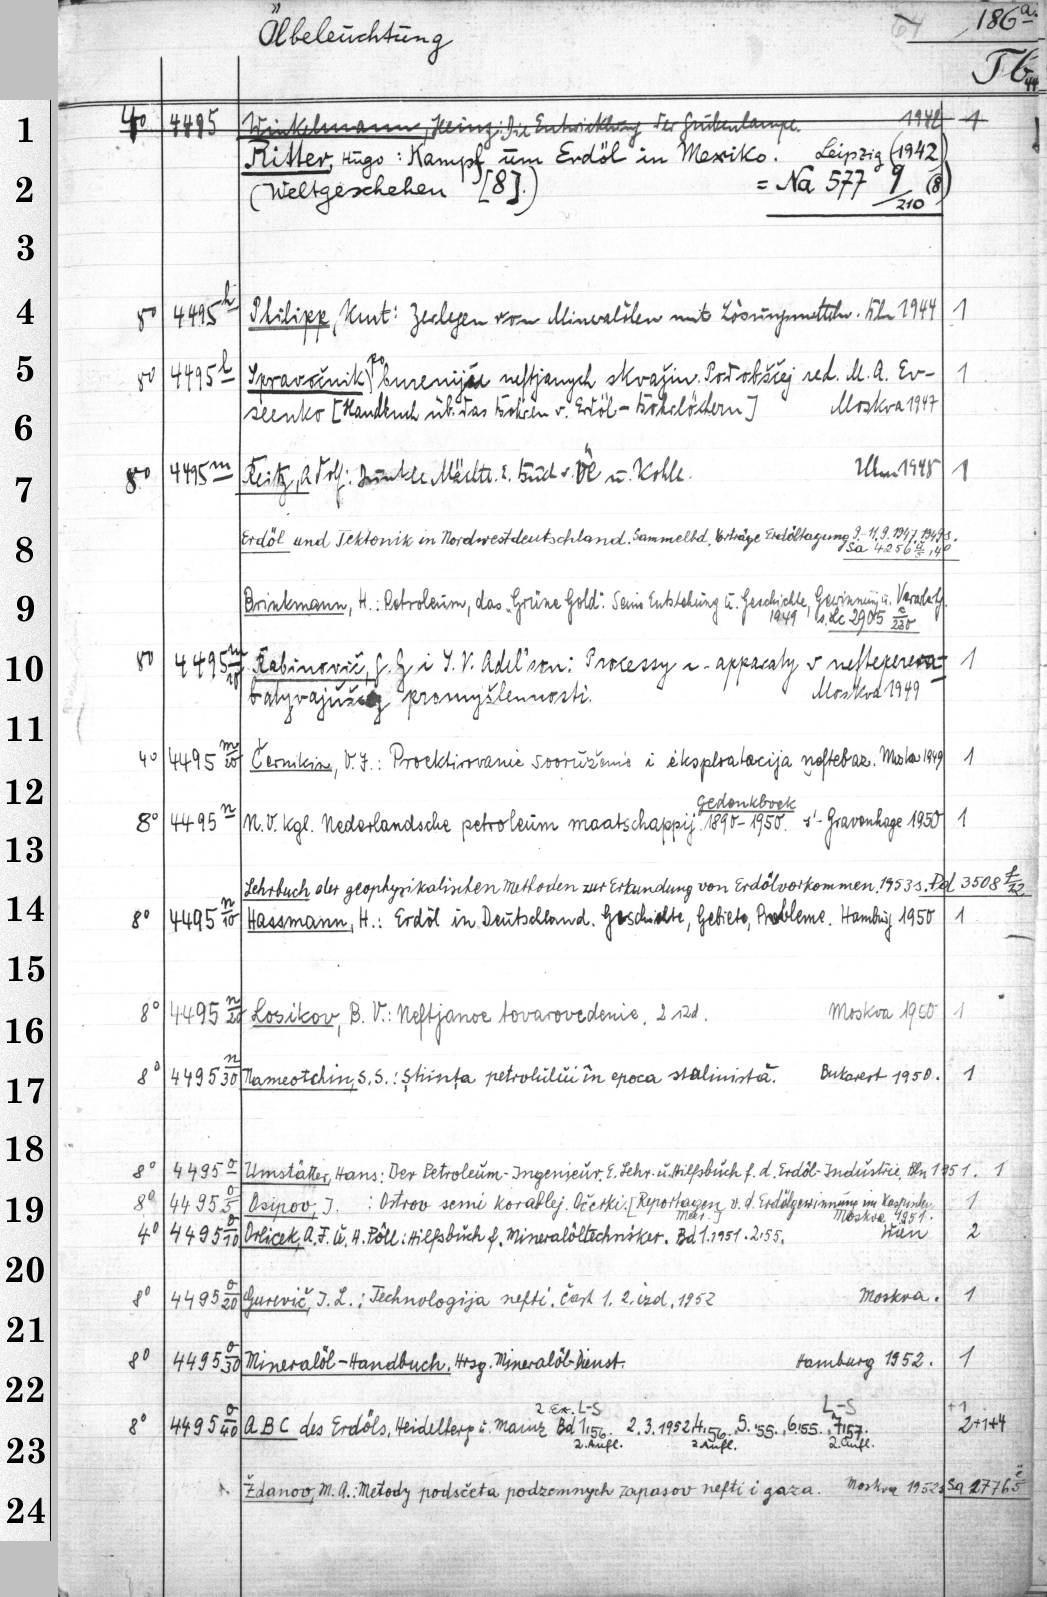 Ölbeleuchtung
64 186 a.
Tb 44
1 4° 4495 Winkelmann, Heinz: Die Entwicklung der Grubenlampe. 1941 1
Ritter, Hugo: Kampf um Erdöl in Mexiko. Leipzig (1942)
2 (Weltgeschehen [8].) = Na 577 9/210 (8)
3
4 8° 4495 k Philipp, Kurt: Zerlegen von Mineralölen mit Lösungsmitteln. Bln 1944 1
5 8° 4495 l Spravočnik po bureniju neftjanych skvažin. Pod obščej red. M. A. Ev-
6 seenko [Handbuch üb. das Bohren v. Erdöl-Bohrlöchern] Moskva 1947 1
7 8° 4495 m Reitz, Adolf: Dunkle Mächte. E. Buch v. Öl u. Kohle. Ulm 1948 1
8 Erdöl und Tektonik in Nordwestdeutschland. Sammelbd. Vorträge Erdöltagung 9.-11.9.1947. 1949 s.
Sa 4256 , 4°
9 Brinkmann, H.: Petroleum, das „Grüne Gold". Seine Entstehung u. Geschichte, Gewinnung u. Verarbtg.
1949 s. Lc 2905 c/230
10 8° 4495 m/10 Rabinovič, G. G. i I. V. Adel'son: Processy i apparaty v neftepere-
batyvajuščej promyšlennosti. Moskva 1949 1
11
4° 4495 m/20 Černikin, V. I.: Proektirovanie sooruženie i ėksploatacija neftebaz. Moskva 1949 1
12
Gedenkboek
8° 4495 n N.V. Kgl. Nederlandsche petroleum maatschappij 1890-1950. s'-Gravenhage 1950 1
13
Lehrbuch der geophysikalischen Methoden zur Erkundung von Erdölvorkommen. 1953 s. Pd 3508 f/12
14 8° 4495 n/10 Hassmann, H.: Erdöl in Deutschland. Geschichte, Gebiete, Probleme. Hamburg 1950 1
15
16 8° 4495 n/20 Losikov, B. V.: Neftjanoe tovarovedenie. 2 izd. Moskva 1950 1
17 8° 4495 n/30 Nameotchin, S. S.: Știința petrolului în epoca stalinistă. Bukarest 1950. 1
18
8° 4495 o Umstätter, Hans: Der Petroleum-Ingenieur. E. Lehr- u. Hilfsbuch f. d. Erdöl-Industrie. Bln 1951. 1
19 8° 4495 o/5 Osipov, I. : Ostrov semi korablej. Očerki. [Reportagen v. d. Erdölgewinnung im Kaspischen
Meer.] Moskva 1951. 1
4° 4495 o/10 Orlicek, A. F. u. H. Pöll: Hilfsbuch f. Mineralöltechniker. Bd 1.1951. 2.55. Wien 2
20
8° 4495 o/20 Gurevič, I. L.: Technologija nefti. Čast 1. 2. izd. 1952 Moskva. 1
21
8° 4495 o/30 Mineralöl-Handbuch. Hrsg. Mineralöl-Dienst. Hamburg 1952. 1
22
2. Ex. L-S L-S +1
8° 4495 o/40 ABC des Erdöls. Heidelberg u. Mainz Bd 1.56. 2.3.1952 4.56. 5.'55., 6.'55., 7.'57. 2+1+4
23 2. Aufl. 2. Aufl. 2. Aufl.
Ždanov, M. A.: Metody podsčeta podzemnych zapasov nefti i gaza. Moskva 1952 s. Sa 2776 ć/5
24